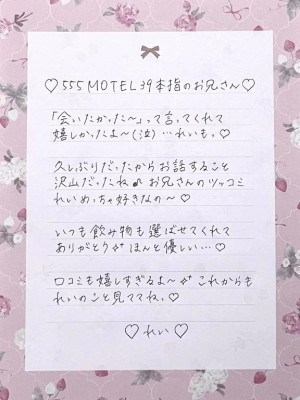 ♡555 MOTEL 39本指のお兄さん♡
「会いたかった〜」って言ってくれて
嬉しかったよ〜(泣)…れいもっ♡
久しぶりだったからお話すること
沢山だったね♪お兄さんのツッコミ
れいめっちゃ好きなの〜♡
いつも飲み物も選ばせてくれて
ありがとう✨ほんと優しい…♡
口コミも嬉しすぎるよ〜✨これからも
れいのこと見ててねっ♡
♡れい♡